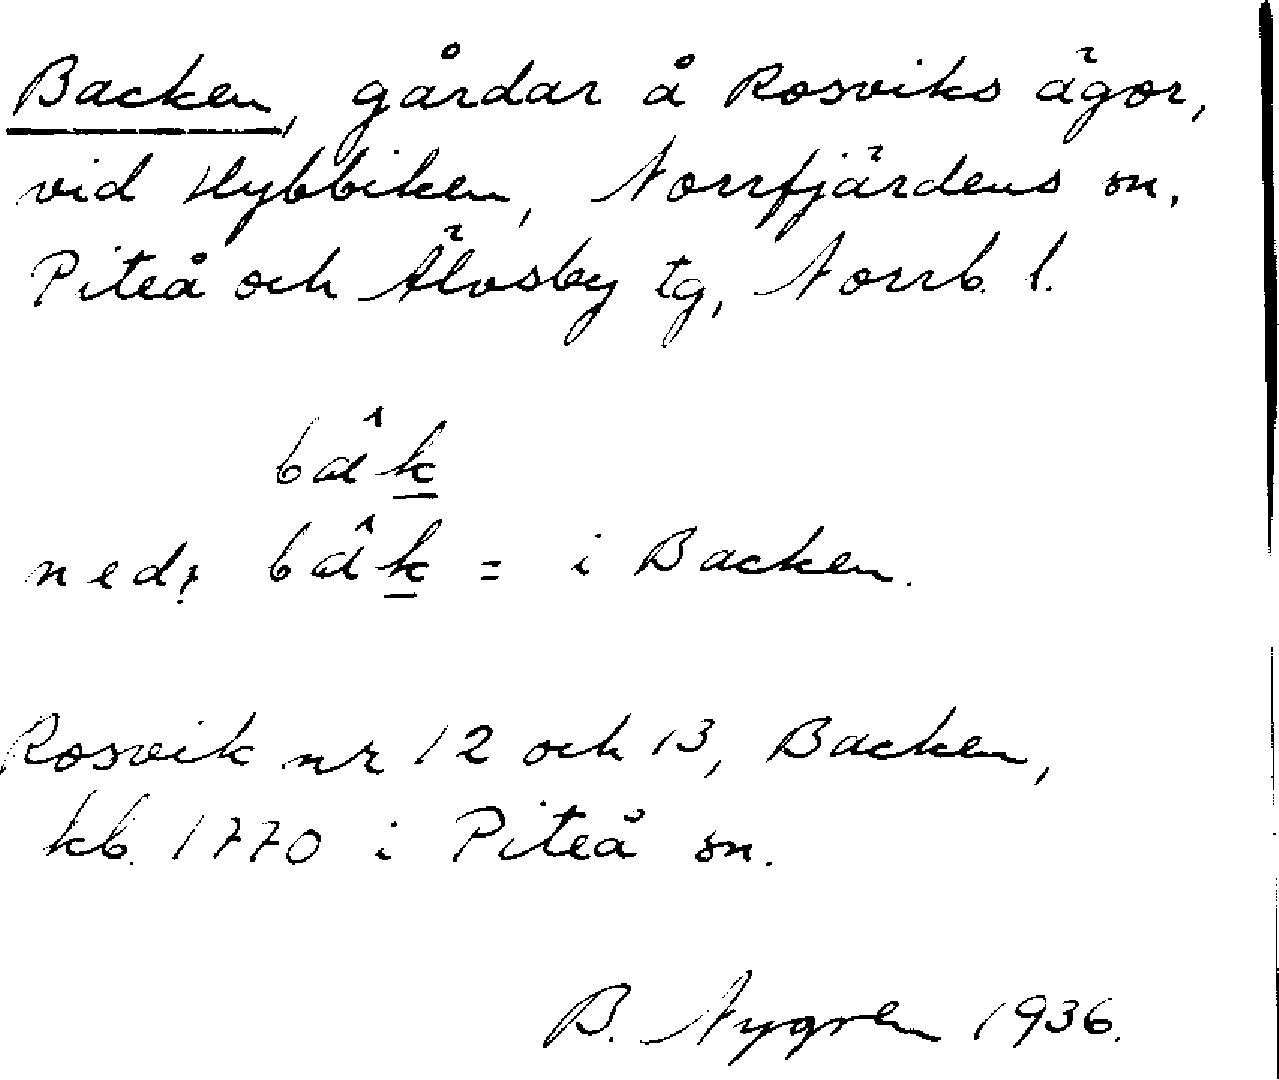 Backen, gårdar å Rosviks ägor,
vid Hybbiken, Norrfjärdens sn,
Piteå och Älvsby tg, Norrb. l.
bâk
bâk = i Backen.
Rosvik nr 12 och 13, Backen,
kb. 1770 i Piteå sn.
B. Nygren 1936.